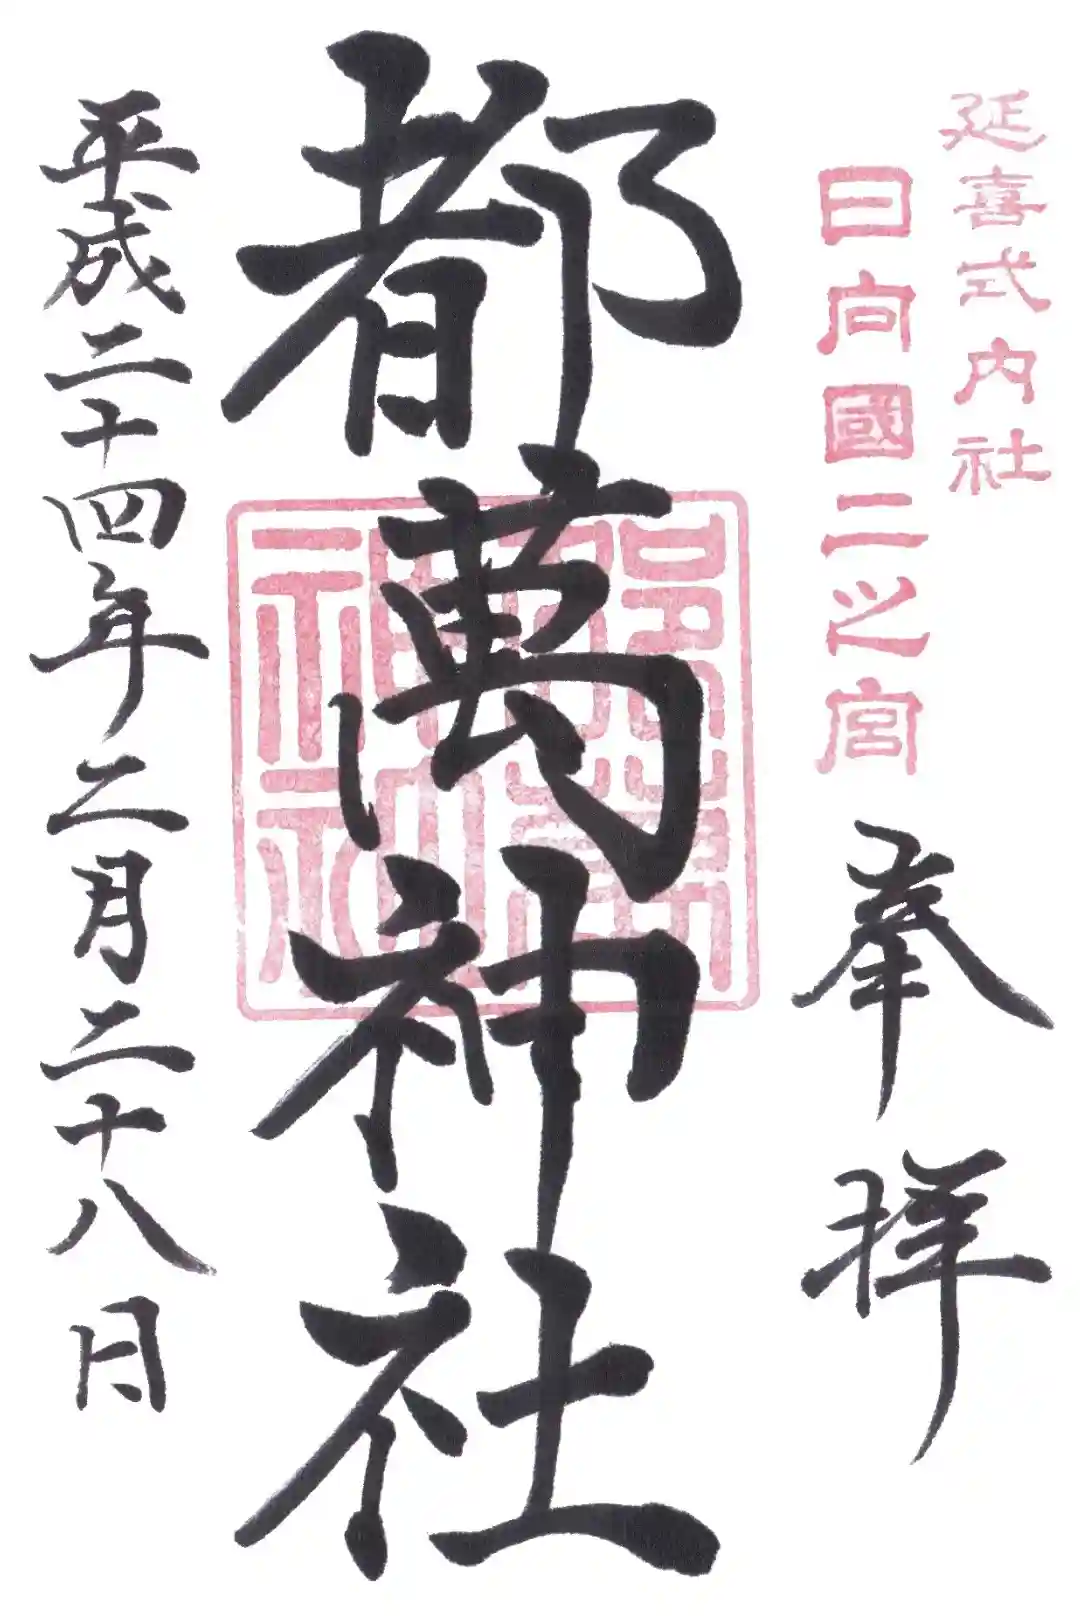 延喜式内社
日向國二之宮
奉拝
都萬神社
平成二十四年二月二十八日